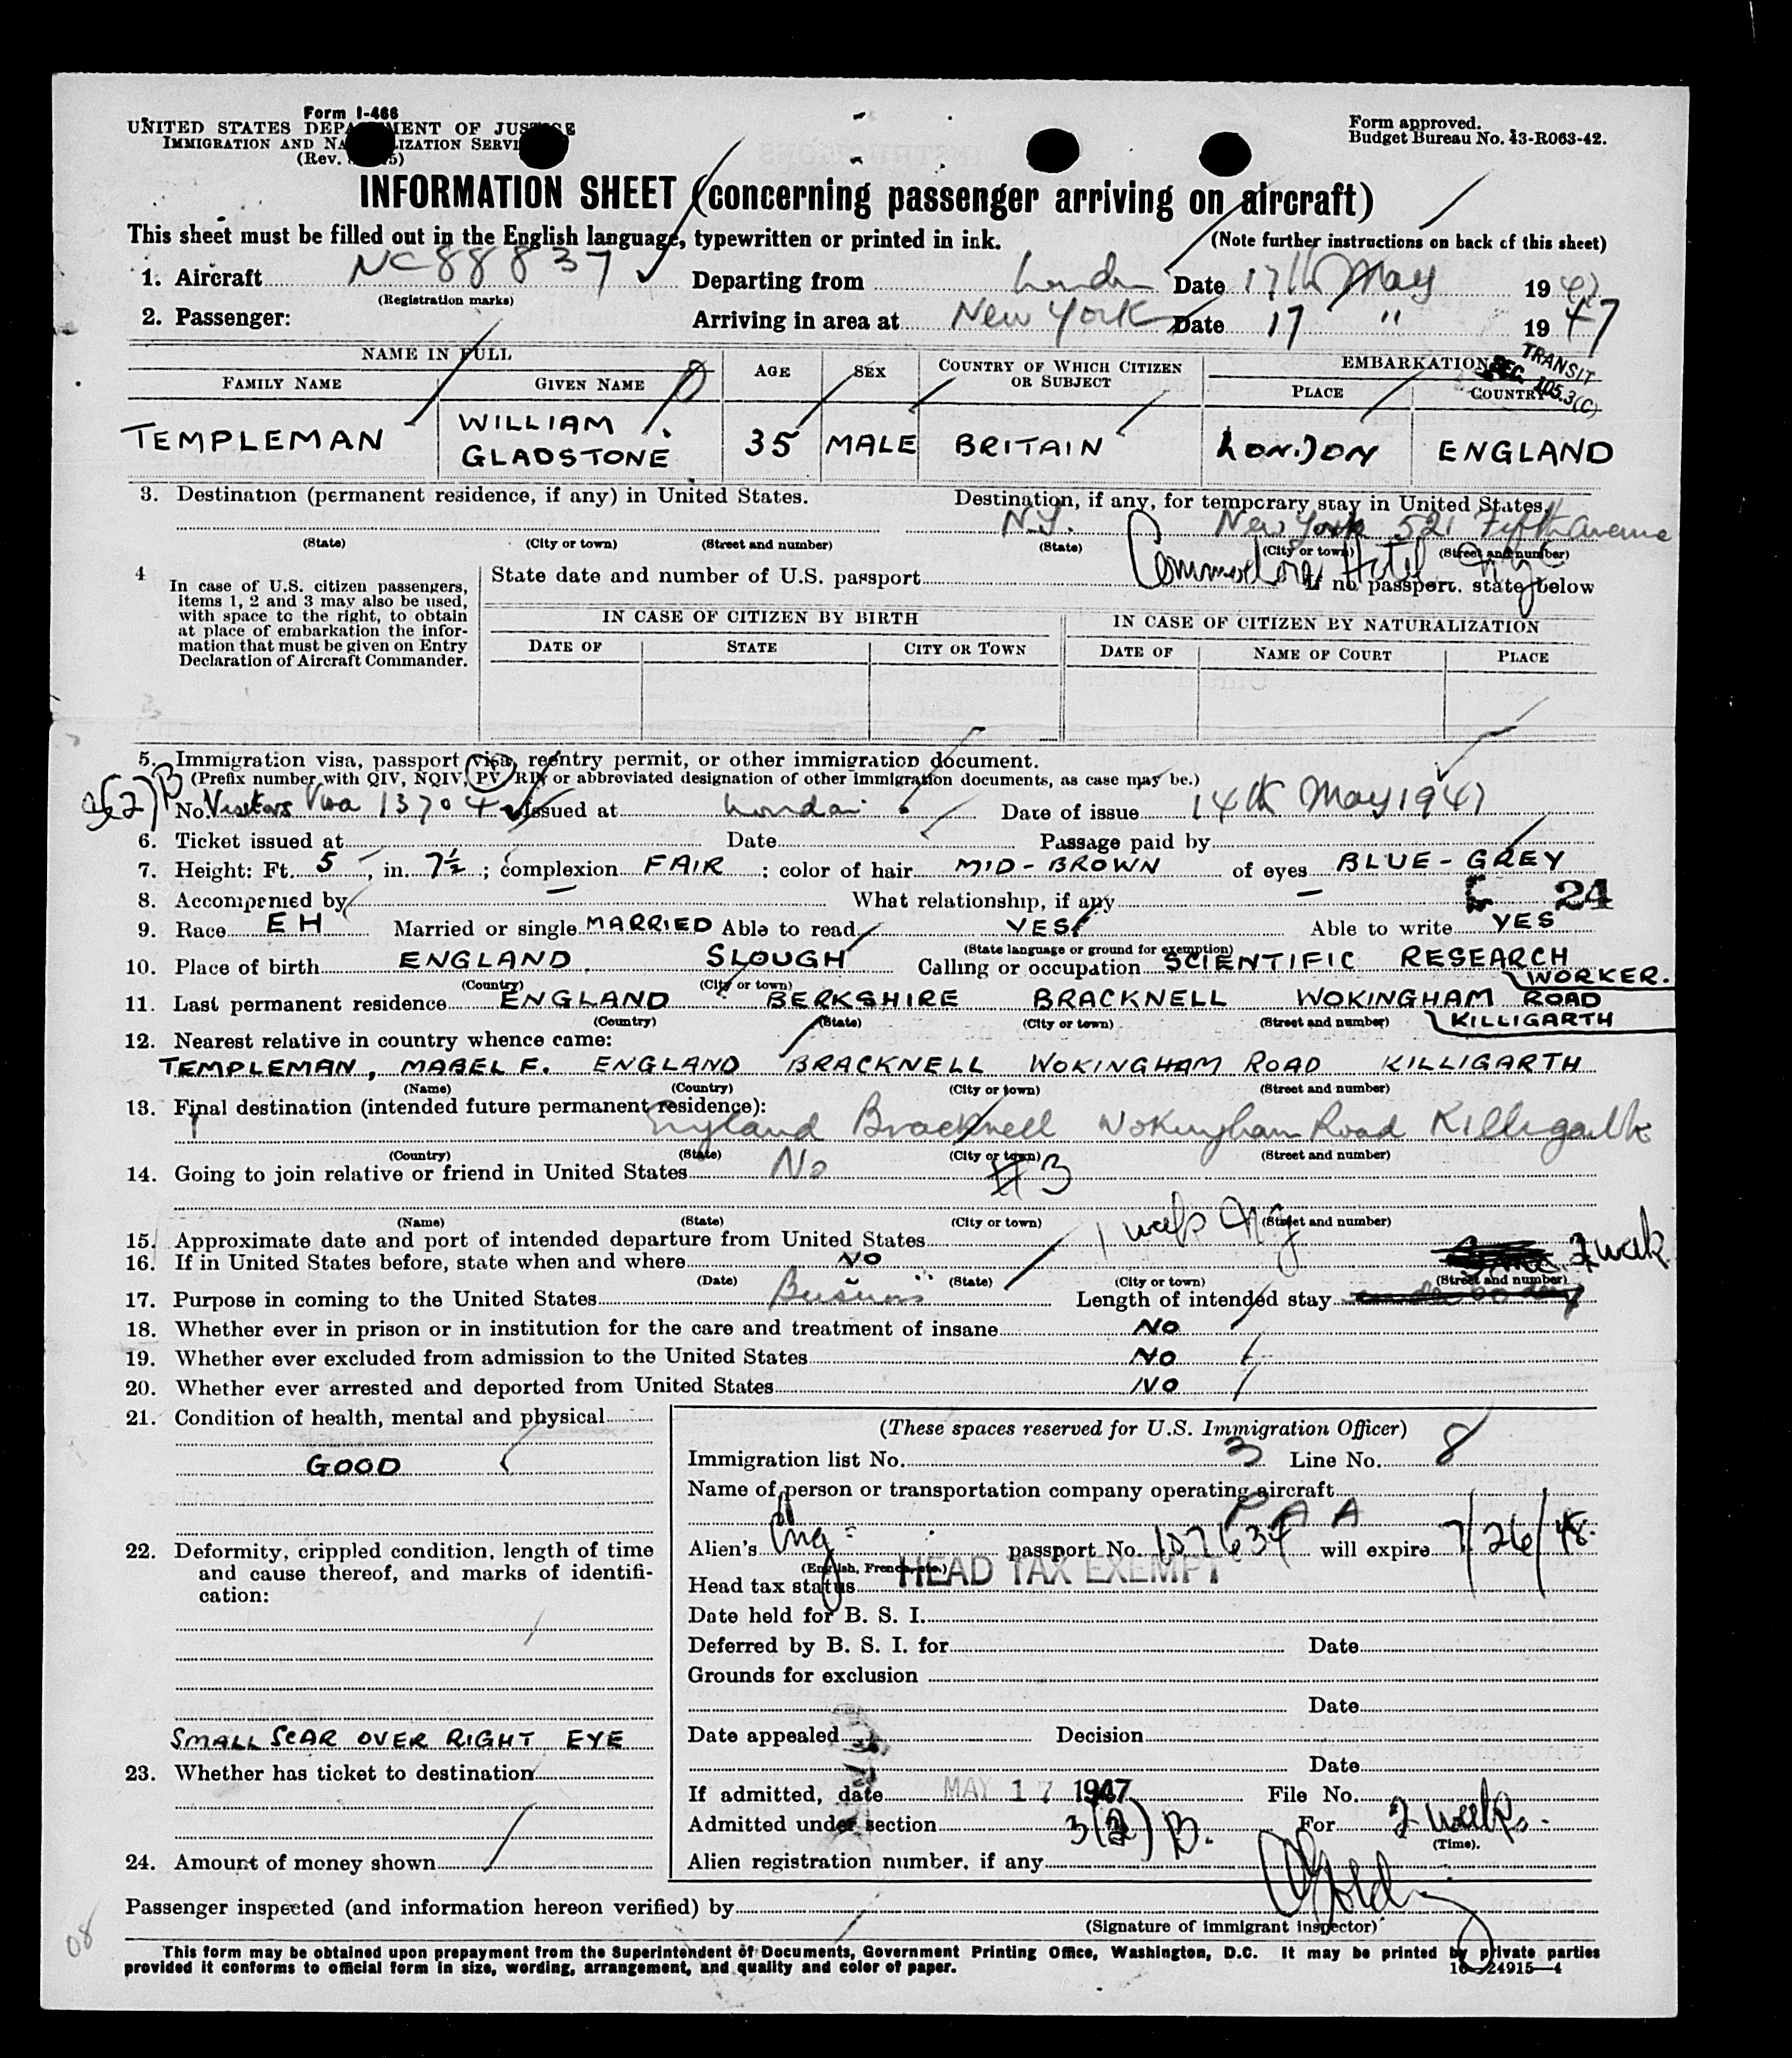 Form I-466
UNITED STATES DEPARTMENT OF JUSTICE
IMMIGRATION AND NATURALIZATION SERVICE
(Rev.
Form approved.
Budget Bureau No. 43-R063-42.
INFORMATION SHEET (concerning passenger arriving on aircraft)
This sheet must be filled out in the English language, typewritten or printed in ink.
(Note further instructions on back of this sheet)
1. Aircraft NC 88837 Departing from London Date 17th May 1947
(Registration marks)
2. Passenger: Arriving in area at New York Date 17 " 1947
TRANSIT
SEC. 105.3(C)
NAME IN FULL AGE SEX COUNTRY OF WHICH CITIZEN OR SUBJECT EMBARKATION
FAMILY NAME GIVEN NAME PLACE COUNTRY
TEMPLEMAN WILLIAM GLADSTONE 35 MALE BRITAIN LONDON ENGLAND
3. Destination (permanent residence, if any) in United States. Destination, if any, for temporary stay in United States.
N.Y. New York 521 Fifth Avenue
(State) (City or town) (Street and number) (State) (City or town) (Street and number)
Commodore Hotel NYC
4 In case of U.S. citizen passengers, items 1, 2 and 3 may also be used, with space to the right, to obtain at place of embarkation the information that must be given on Entry Declaration of Aircraft Commander.
State date and number of U.S. passport If no passport, state below
IN CASE OF CITIZEN BY BIRTH IN CASE OF CITIZEN BY NATURALIZATION
DATE OF STATE CITY OR TOWN DATE OF NAME OF COURT PLACE
5. Immigration visa, passport visa, reentry permit, or other immigration document.
(Prefix number with QIV, NQIV, PV, RP, or abbreviated designation of other immigration documents, as case may be.)
3(2)B
No. Visitors Visa 13704 Issued at London Date of issue 14th May 1947
6. Ticket issued at Date Passage paid by
7. Height: Ft. 5, in. 7½; complexion FAIR; color of hair MID-BROWN of eyes BLUE-GREY
8. Accompanied by — What relationship, if any —
24
9. Race EH Married or single MARRIED Able to read YES Able to write YES
(State language or ground for exemption)
10. Place of birth ENGLAND SLOUGH Calling or occupation SCIENTIFIC RESEARCH WORKER.
(Country) (City or town)
11. Last permanent residence ENGLAND BERKSHIRE BRACKNELL WOKINGHAM ROAD KILLIGARTH
(Country) (State) (City or town) (Street and number)
12. Nearest relative in country whence came:
TEMPLEMAN, MABEL F. ENGLAND BRACKNELL WOKINGHAM ROAD KILLIGARTH
(Name) (Country) (City or town) (Street and number)
13. Final destination (intended future permanent residence):
England Bracknell Wokingham Road Killigarth
(Country) (State) (City or town) (Street and number)
14. Going to join relative or friend in United States No
#3
(Name) (State) (City or town) (Street and number)
15. Approximate date and port of intended departure from United States 1 week NY
16. If in United States before, state when and where NO
2 week
(Date) (State) (City or town) (Street and number)
17. Purpose in coming to the United States Business Length of intended stay
18. Whether ever in prison or in institution for the care and treatment of insane NO
19. Whether ever excluded from admission to the United States NO
20. Whether ever arrested and deported from United States NO
21. Condition of health, mental and physical
GOOD
22. Deformity, crippled condition, length of time and cause thereof, and marks of identification:
SMALL SCAR OVER RIGHT EYE
23. Whether has ticket to destination
24. Amount of money shown
(These spaces reserved for U.S. Immigration Officer)
Immigration list No. 3 Line No. 8
Name of person or transportation company operating aircraft
P A A
Alien's Eng passport No. 107634 will expire 7/26/48.
(English, French, etc.)
Head tax status HEAD TAX EXEMPT
Date held for B. S. I.
Deferred by B. S. I. for Date
Grounds for exclusion
Date
Date appealed Decision
Date
If admitted, date MAY 17 1947 File No.
Admitted under section 3(2) B. For 2 weeks.
(Time).
Alien registration number, if any
Passenger inspected (and information hereon verified) by
(Signature of immigrant inspector)
This form may be obtained upon prepayment from the Superintendent of Documents, Government Printing Office, Washington, D.C. It may be printed by private parties
provided it conforms to official form in size, wording, arrangement, and quality and color of paper.
16—24915—4
08